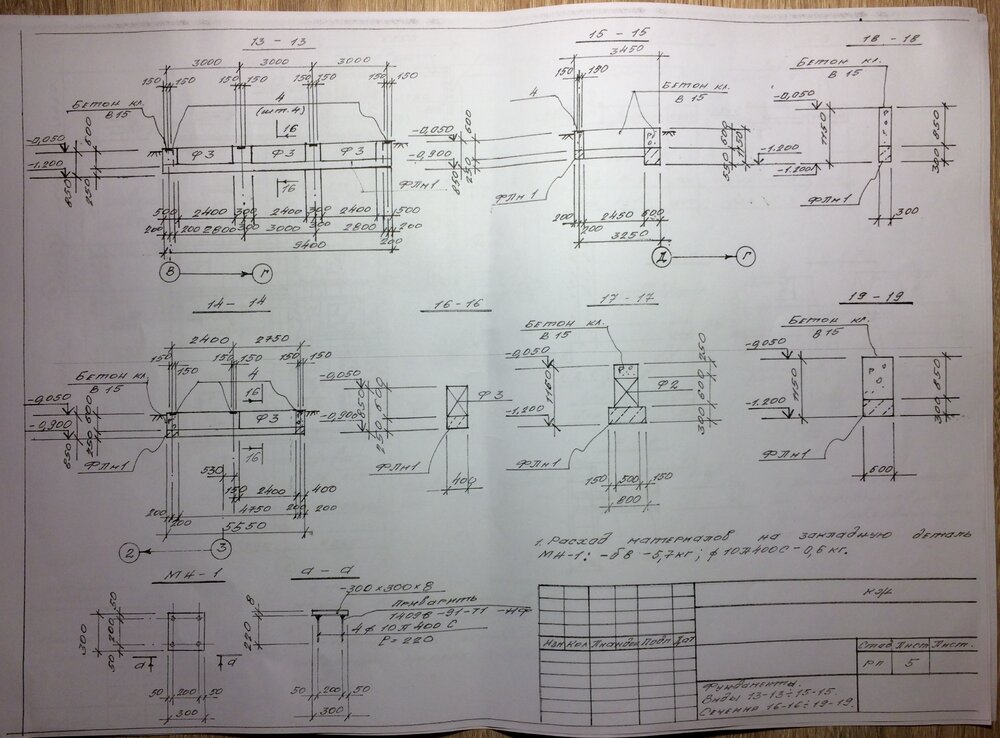 13 - 13
3000 3000 3000
150 150 150 150 150 150 150
Бетон кл.
В 15
4
(шт. 4)
16
-0,050
600
Ф3 Ф3 Ф3
-1.200
850
250
16
ФЛм1
500 2400 300 2400 300 2400 500
200 200 2800 300 3000 300 2800 200
9400
В Г
15 - 15
3450
150 190
4
Бетон кл.
В 15
-0,050
600
-0,900
850
250
ФЛм1
600
1150
550
-1.200
200 2450 600
200
3250
Д Г
18 - 18
Бетон кл.
В 15
-0,050
1150
850
300
-1.200
ФЛм1
300
14 - 14
2400 2750
150 150 150 150 150
Бетон кл.
В 15
4
-0,050
16
600
Ф3
-0,900
850
250
ФЛм1
16
530
150 2400 400
200 4750 200
200
5550
2 3
16 - 16
-0,050
850
600
Ф3
-0,900
250
ФЛм1
400
17 - 17
Бетон кл.
В 15
-0,050
1150
250
600
300
Ф2
-1,200
ФЛм1
150 500 150
800
19 - 19
Бетон кл.
В 15
-0,050
1150
850
300
-1.200
ФЛм1
600
1. Расход материалов на закладную деталь
МН-1: -δ8 -5,7кг; ф10П400С-0,6кг.
МН-1
50
200
300
50
а а
50 200 50
300
а - а
-300×300×8
приварить
14098-91-Т1-НФ
4ф10П400С
ℓ=220
8
220
50 200 50
300
КЖ
Изм Кол Лист №док Подп Дат
Стад Лист Лист.
РП 5
Фундаменты.
Виды 13-13÷15-15.
Сечения 16-16÷19-19.